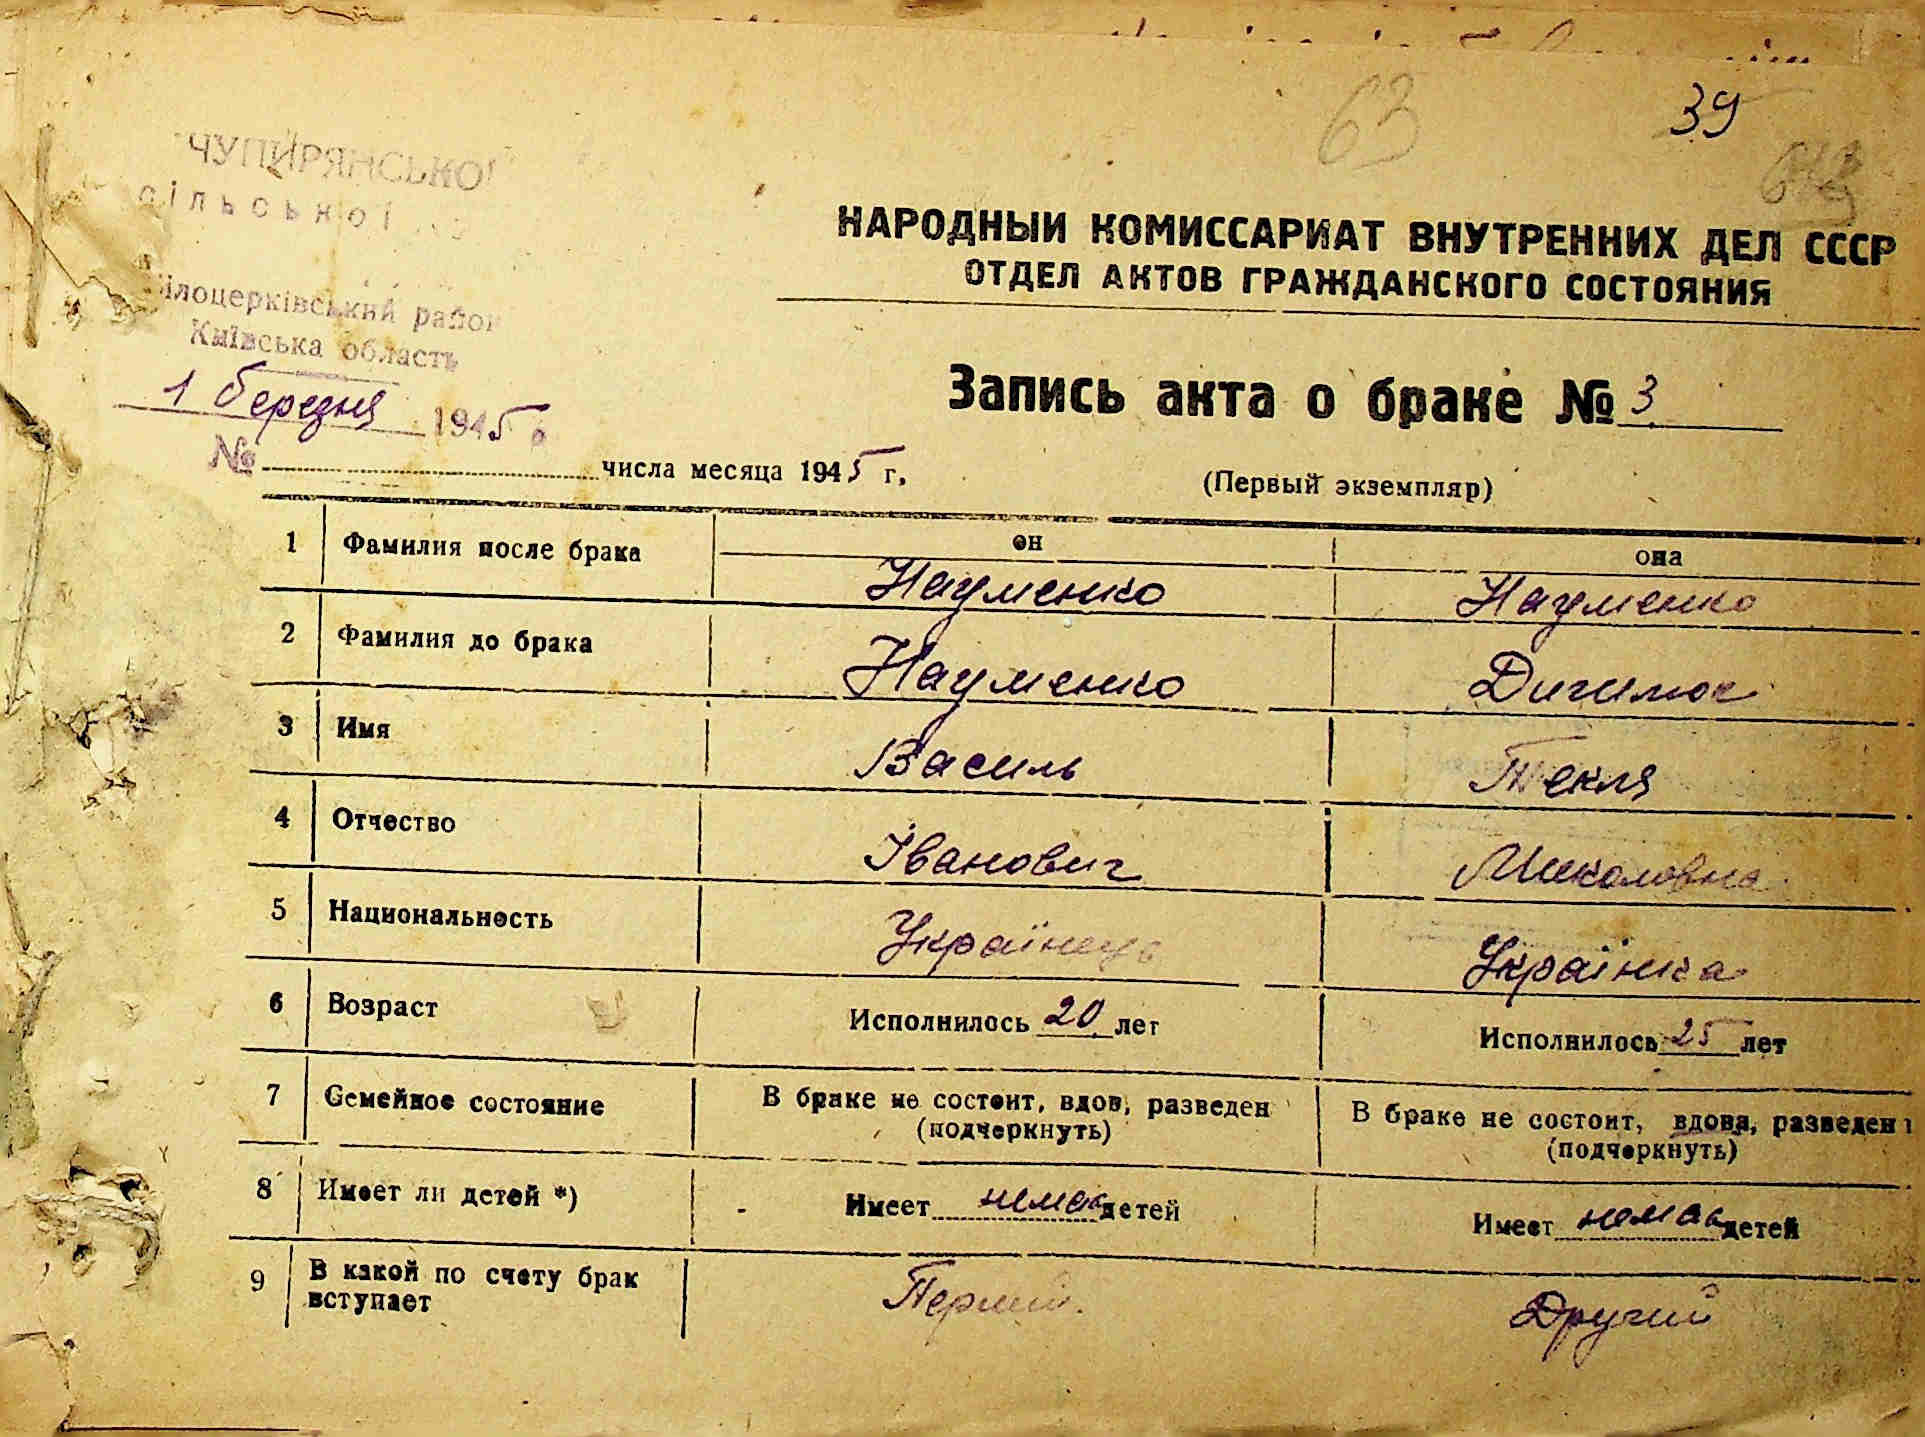 39
63
ЧУПИРЯНСЬКОЇ
сільської
Білоцерківський район
Київська область
1 березня 1945 р
НАРОДНЫЙ КОМИССАРИАТ ВНУТРЕННИХ ДЕЛ СССР
ОТДЕЛ АКТОВ ГРАЖДАНСКОГО СОСТОЯНИЯ
Запись акта о браке № 3
№ числа месяца 1945 г.
(Первый экземпляр)
он она
1 Фамилия после брака Науменко Науменко
2 Фамилия до брака Науменко
3 Имя Василь Текля
4 Отчество Іванович Миколовна
5 Национальность Українець Українка
6 Возраст Исполнилось 20 лет Исполнилось 25 лет
7 Семейное состояние В браке не состоит, вдов, разведен В браке не состоит, вдова, разведен
(подчеркнуть) (подчеркнуть)
8 Имеет ли детей *) Имеет немає детей Имеет немає детей
9 В какой по счету брак Перший. Другий
вступает